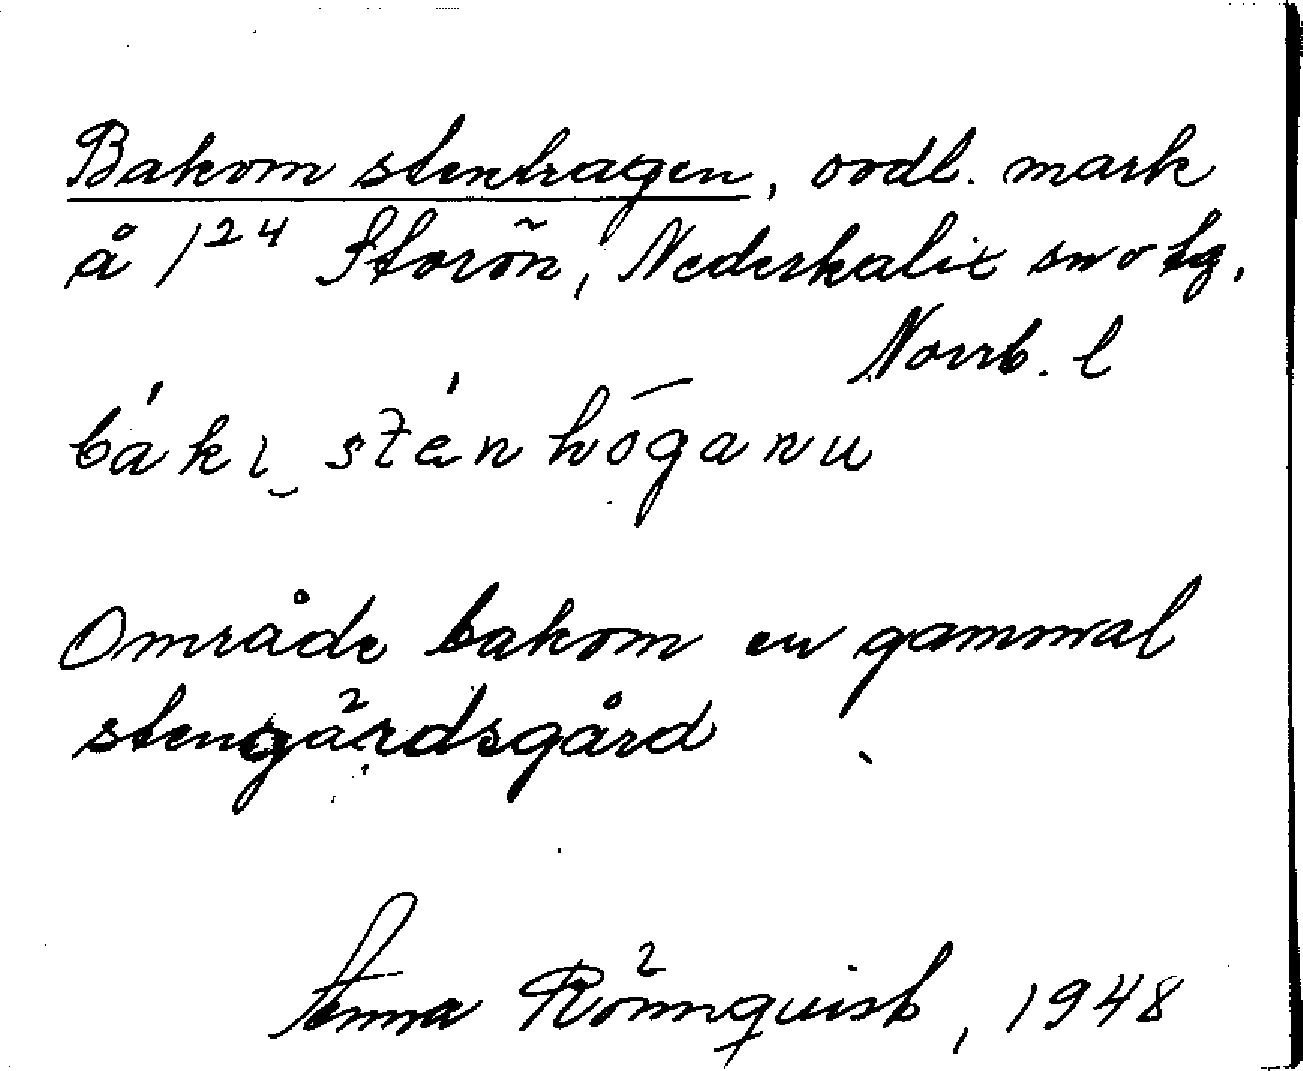 Bakom stenhagen, oodl. mark
å 1²⁴ Storön, Nederkalix sn o tg,
Norrb. l
Område bakom en gammal
stengärdsgård
Anna Rönnquist, 1948